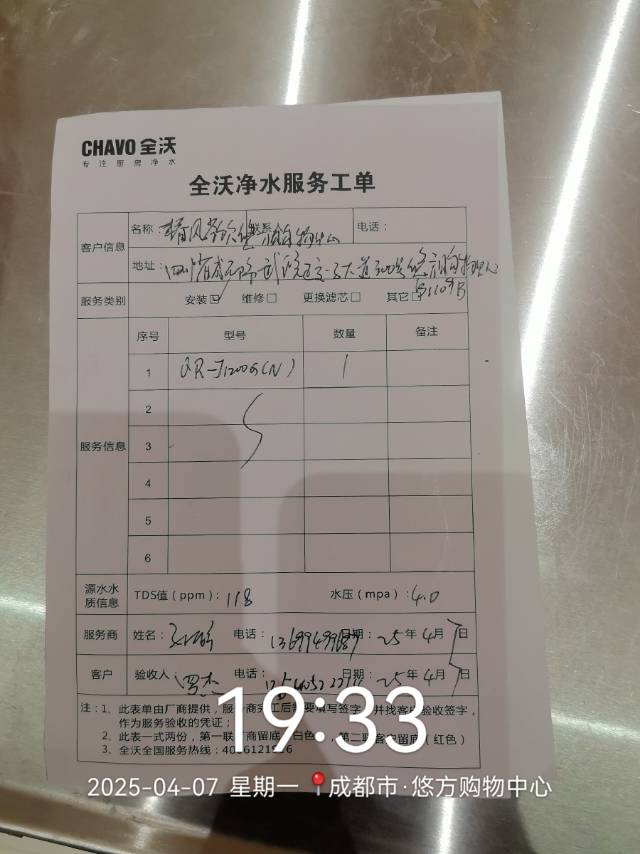 CHAVO 全沃
专注厨房净水
全沃净水服务工单
客户信息
名称: 联系
电话:
地址: 四川省成都市武侯区
B1109B
服务类别 安装☑ 维修□ 更换滤芯□ 其它□
服务信息
序号 型号 数量 备注
1 QR-J1200G(N) 1
2
3
4
5
6
源水水质信息 TDS值(ppm): 118 水压(mpa): 4.0
服务商 姓名: 电话: 日期: 25年4月7日
客户 验收人 罗杰 电话: 日期: 25年4月7日
注:1、此表单由厂商提供,
并找客户验收签字,
作为服务验收的凭证;
2、此表一式两份,第一联 商留底 白色 ,第二联客户留底(红色)
3、全沃全国服务热线:
19:33
2025-04-07 星期一 成都市·悠方购物中心